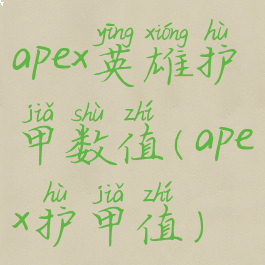 yīng xióng hù
apex英雄护
jiǎ shù zhí
甲数值(ape
hù jiǎ zhí
x护甲值)